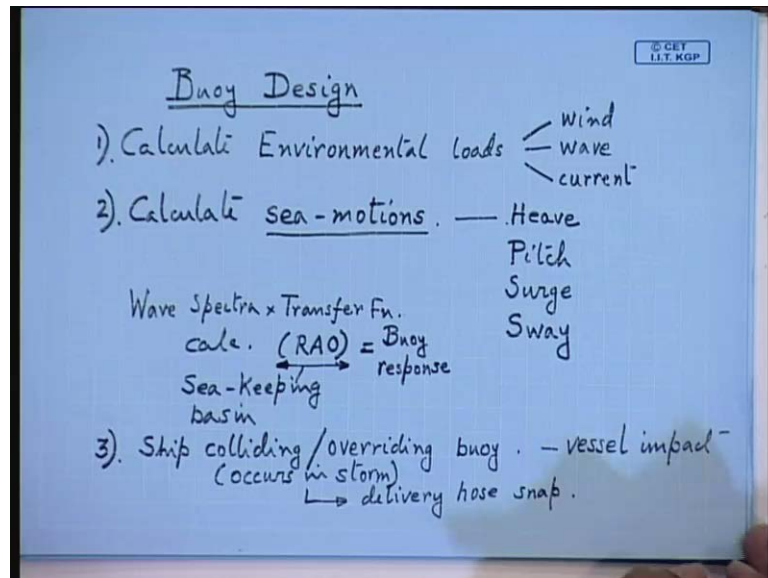 © CET
I.I.T. KGP
Buoy Design
1). Calculate Environmental loads
wind
wave
current
2). Calculate sea-motions. — Heave
Pitch
Surge
Sway
Wave Spectra x Transfer Fn.
calc. (RAO) = Buoy response
Sea-Keeping
basin
3). Ship colliding/overriding buoy. - vessel impact
(occurs in storm)
delivery hose snap.